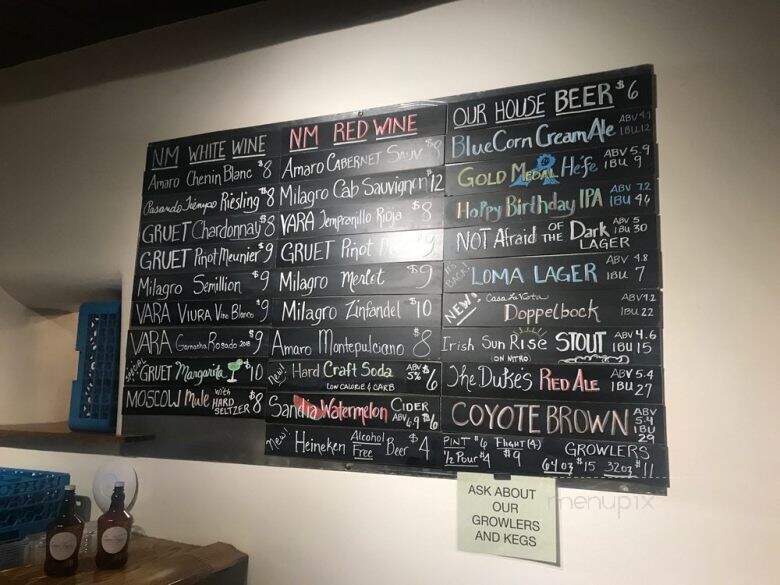 NM WHITE WINE
Amaro Chenin Blanc $8
Pasando Tiempo Riesling $8
GRUET Chardonnay $8
GRUET Pinot Meunier $9
Milagro Semillion $9
VARA VIURA Vino Blanco $9
VARA Garnacha Rosado 2018 $9
SPECIAL GRUET Margarita $10
MOSCOW Mule with HARD SELTZER $8
NM RED WINE
Amaro CABERNET SAUV
Milagro Cab Sauvignon $12
VARA Tempranillo Rioja $8
GRUET Pinot
Milagro Merlot $9
Milagro Zinfandel $10
Amaro Montepulciano $8
New! Hard Craft Soda ABV 5% $6
LOW CALORIE & CARB
Sandia Watermelon CIDER ABV 6.9 $6
New! Heineken Alcohol Free Beer $4
OUR HOUSE BEER $6
Blue Corn Cream Ale IBU 12
GOLD MEDAL Hefe ABV 5.9 IBU 9
Hoppy Birthday IPA ABV 7.2
NOT Afraid OF THE Dark LAGER ABV 5 IBU 30
LOMA LAGER ABV 4.8 IBU 7
NEW! Casa La Kota Doppelbock IBU 22
Irish Sun Rise STOUT ABV 4.6 IBU 15
(ON NITRO)
The Duke's RED ALE ABV 5.4 IBU 27
COYOTE BROWN ABV 5.4 IBU 29
PINT $6 FLIGHT (4) GROWLERS
1/2 Pour $4 $9 64 oz $15 32oz $11
ASK ABOUT
OUR
GROWLERS
AND KEGS
menupix